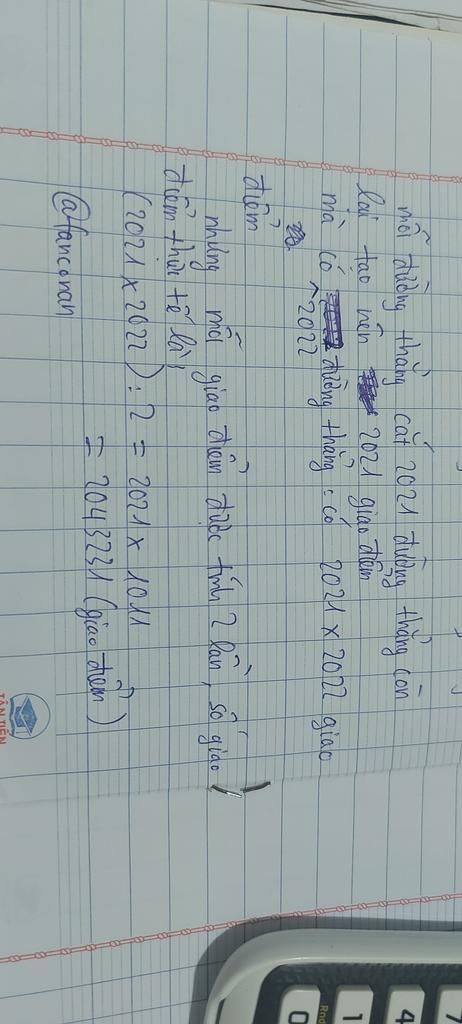 mỗi đường thẳng cắt 2021 đường thẳng còn
lại tạo nên 2021 giao điểm
mà có 2022 đường thẳng: có 2021 x 2022 giao
điểm
nhưng mỗi giao điểm được tính 2 lần, số giao
điểm thực tế là:
(2021 x 2022) : 2 = 2021 x 1011
= 2043231 (giao điểm)
@fanconan
TÂN TIẾN
7
4
1
0
Rnd